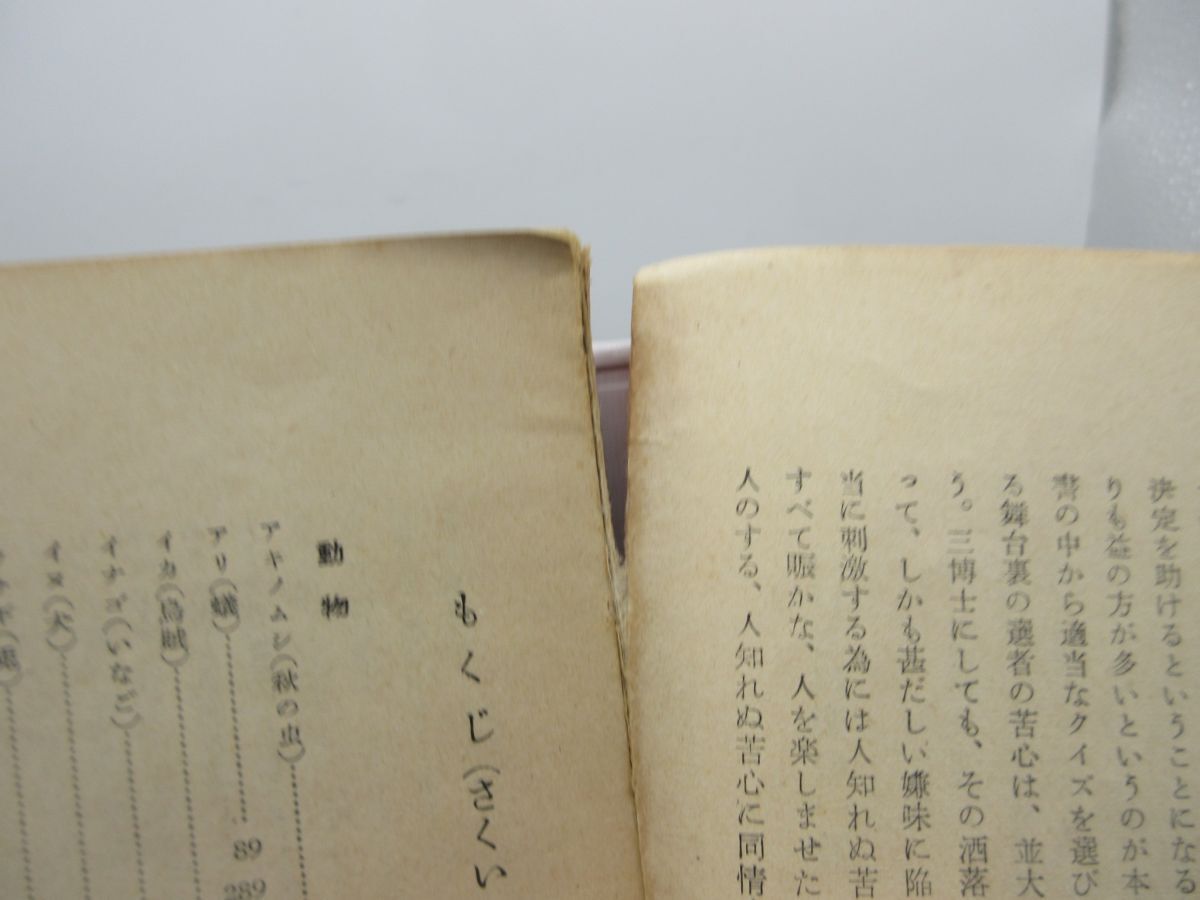 決定を助けるということになる
りも益の方が多いというのが本
書の中から適当なクイズを選び
る舞台裏の選者の苦心は、並大
う。三博士にしても、その洒落
って、しかも甚だしい嫌味に陥
当に刺激する為には人知れぬ苦
すべて賑かな、人を楽しませた
人のする、人知れぬ苦心に同情
もくじ(さくい
動物
アキノムシ(秋の虫)
アリ(蟻)……89
イカ(烏賊)……289
イナゴ(いなご)
イヌ(犬)